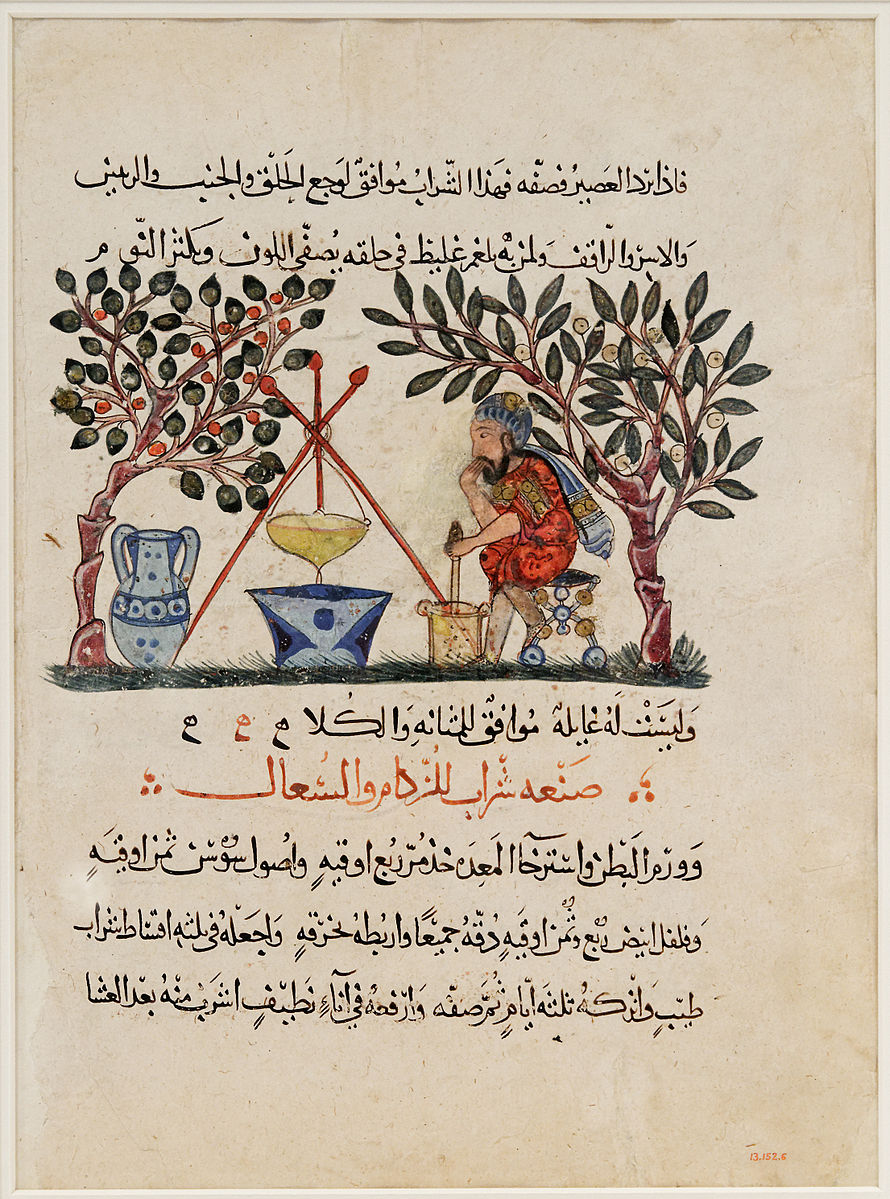 فاذا برد العصير فصفّه فهذا الشّراب مُوافقٌ لوَجع الحَلْق والجنب والرئين
والاسر والراقف ولمن به بلغم غليظ في حلقه يُصفّى اللون ويكثر النّوم
وَليسَتْ لهُ غايلة مُوافقٌ للمثانهِ وَالكُلا ح ح ح
صَنْعه شراب للزّكام والسُعال
وَوَرم البَطن واسترخا المَعِدَه خذ مُرّ ربُع اوقيهٍ واصُول سُوسْن ثمن اوقيةٍ
وَفلفل ابيض ربُع وثُمن اوقيَهٍ دُقّهُ جميعًا واربُطهُ بخرقهٍ وَاجعَلهُ في ثلثه اقساط شراب
طيّبٍ وَاتركهُ ثلثهَ ايّامٍ ثُمّ صَفّه وَارفعهُ في اناءٍ نَظيفٍ اشرَب منْهُ بعد العشا
13.152.6